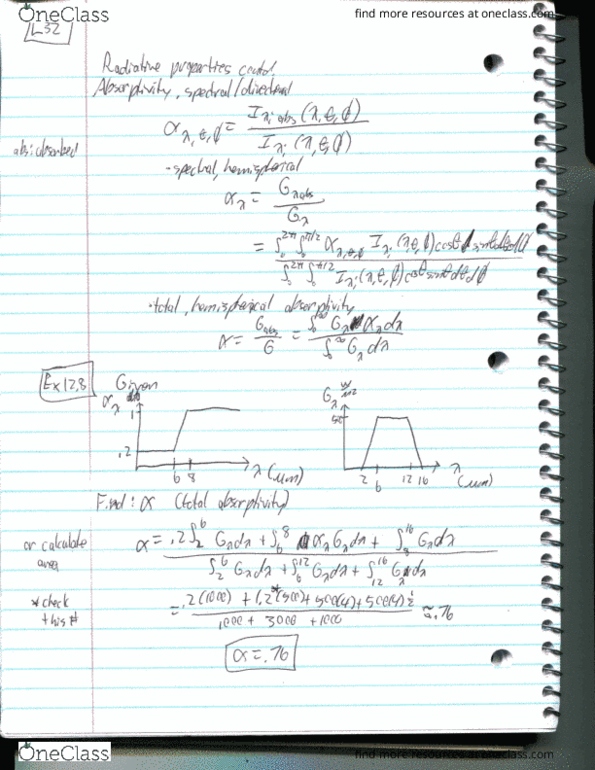 OneClass
find more resources at oneclass.com
L32
Radiative properties contd.
Absorptivity, spectral/directional
α λ,θ,ϕ = I λ,i abs (λ,θ,ϕ) / I λ,i (λ,θ,ϕ)
abs: absorbed
·spectral, hemispherical
α λ = G λ abs / G λ
= ∫₀^2π ∫₀^π/2 α λ,θ,ϕ I λ,i (λ,θ,ϕ) cosθ sinθ dθ dϕ / ∫₀^2π ∫₀^π/2 I λ,i (λ,θ,ϕ) cosθ sinθ dθ dϕ
·total, hemispherical absorptivity
α = G abs / G = ∫₀^∞ G λ α λ dλ / ∫₀^∞ G λ dλ
Ex 12.8
Given
α λ
1
.2
6 8
λ (um)
G λ w/m2
2 6 12 16
λ (um)
Find: α (total absorptivity)
or calculate area
α = .2 ∫₂^6 G λ dλ + ∫₆^8 α λ G λ dλ + ∫₈^16 G λ dλ / ∫₂^6 G λ dλ + ∫₆^12 G λ dλ + ∫₁₂^16 G λ dλ
* check this #
1000 + 3000 + 1000
≈ .76
α = .76
OneClass
find more resources at oneclass.com